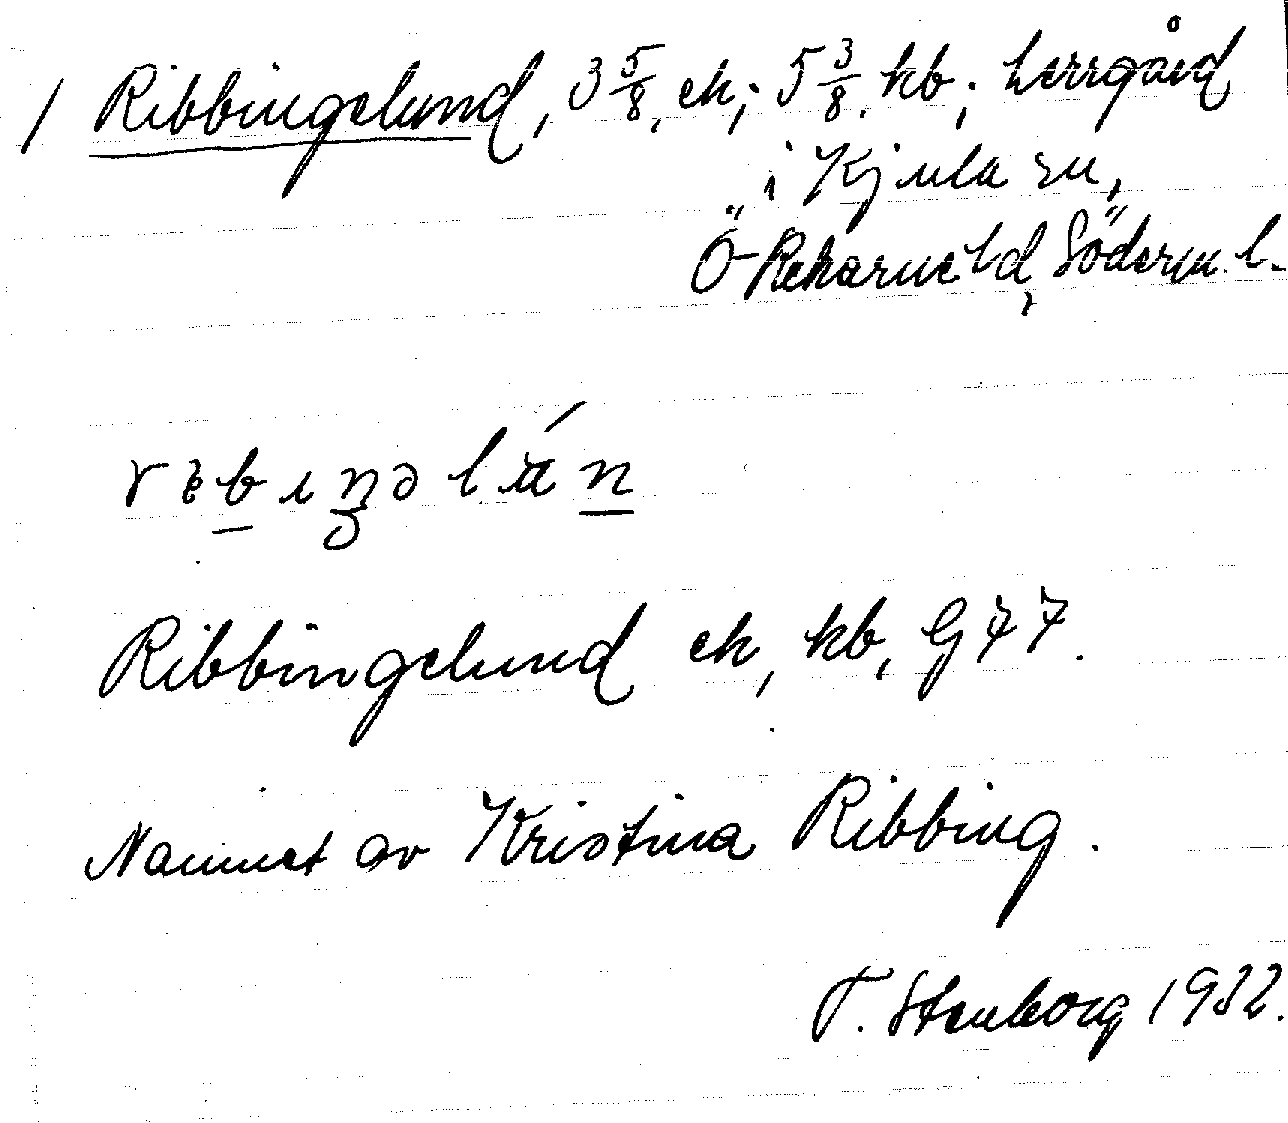 1 Ribbingelund, 3 5/8, ek; 5 3/8, kb; herrgård
i Kjula sn,
Ö Rekarne hd, Söderm. l.
Ribbingelund ek, kb, G 77.
Namnet av Kristina Ribbing.
T. Stenborg 1932.